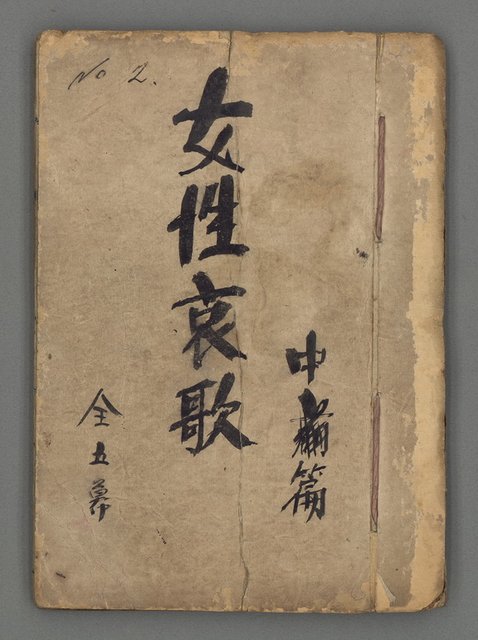 No 2.
中篇
女性哀歌
全五幕